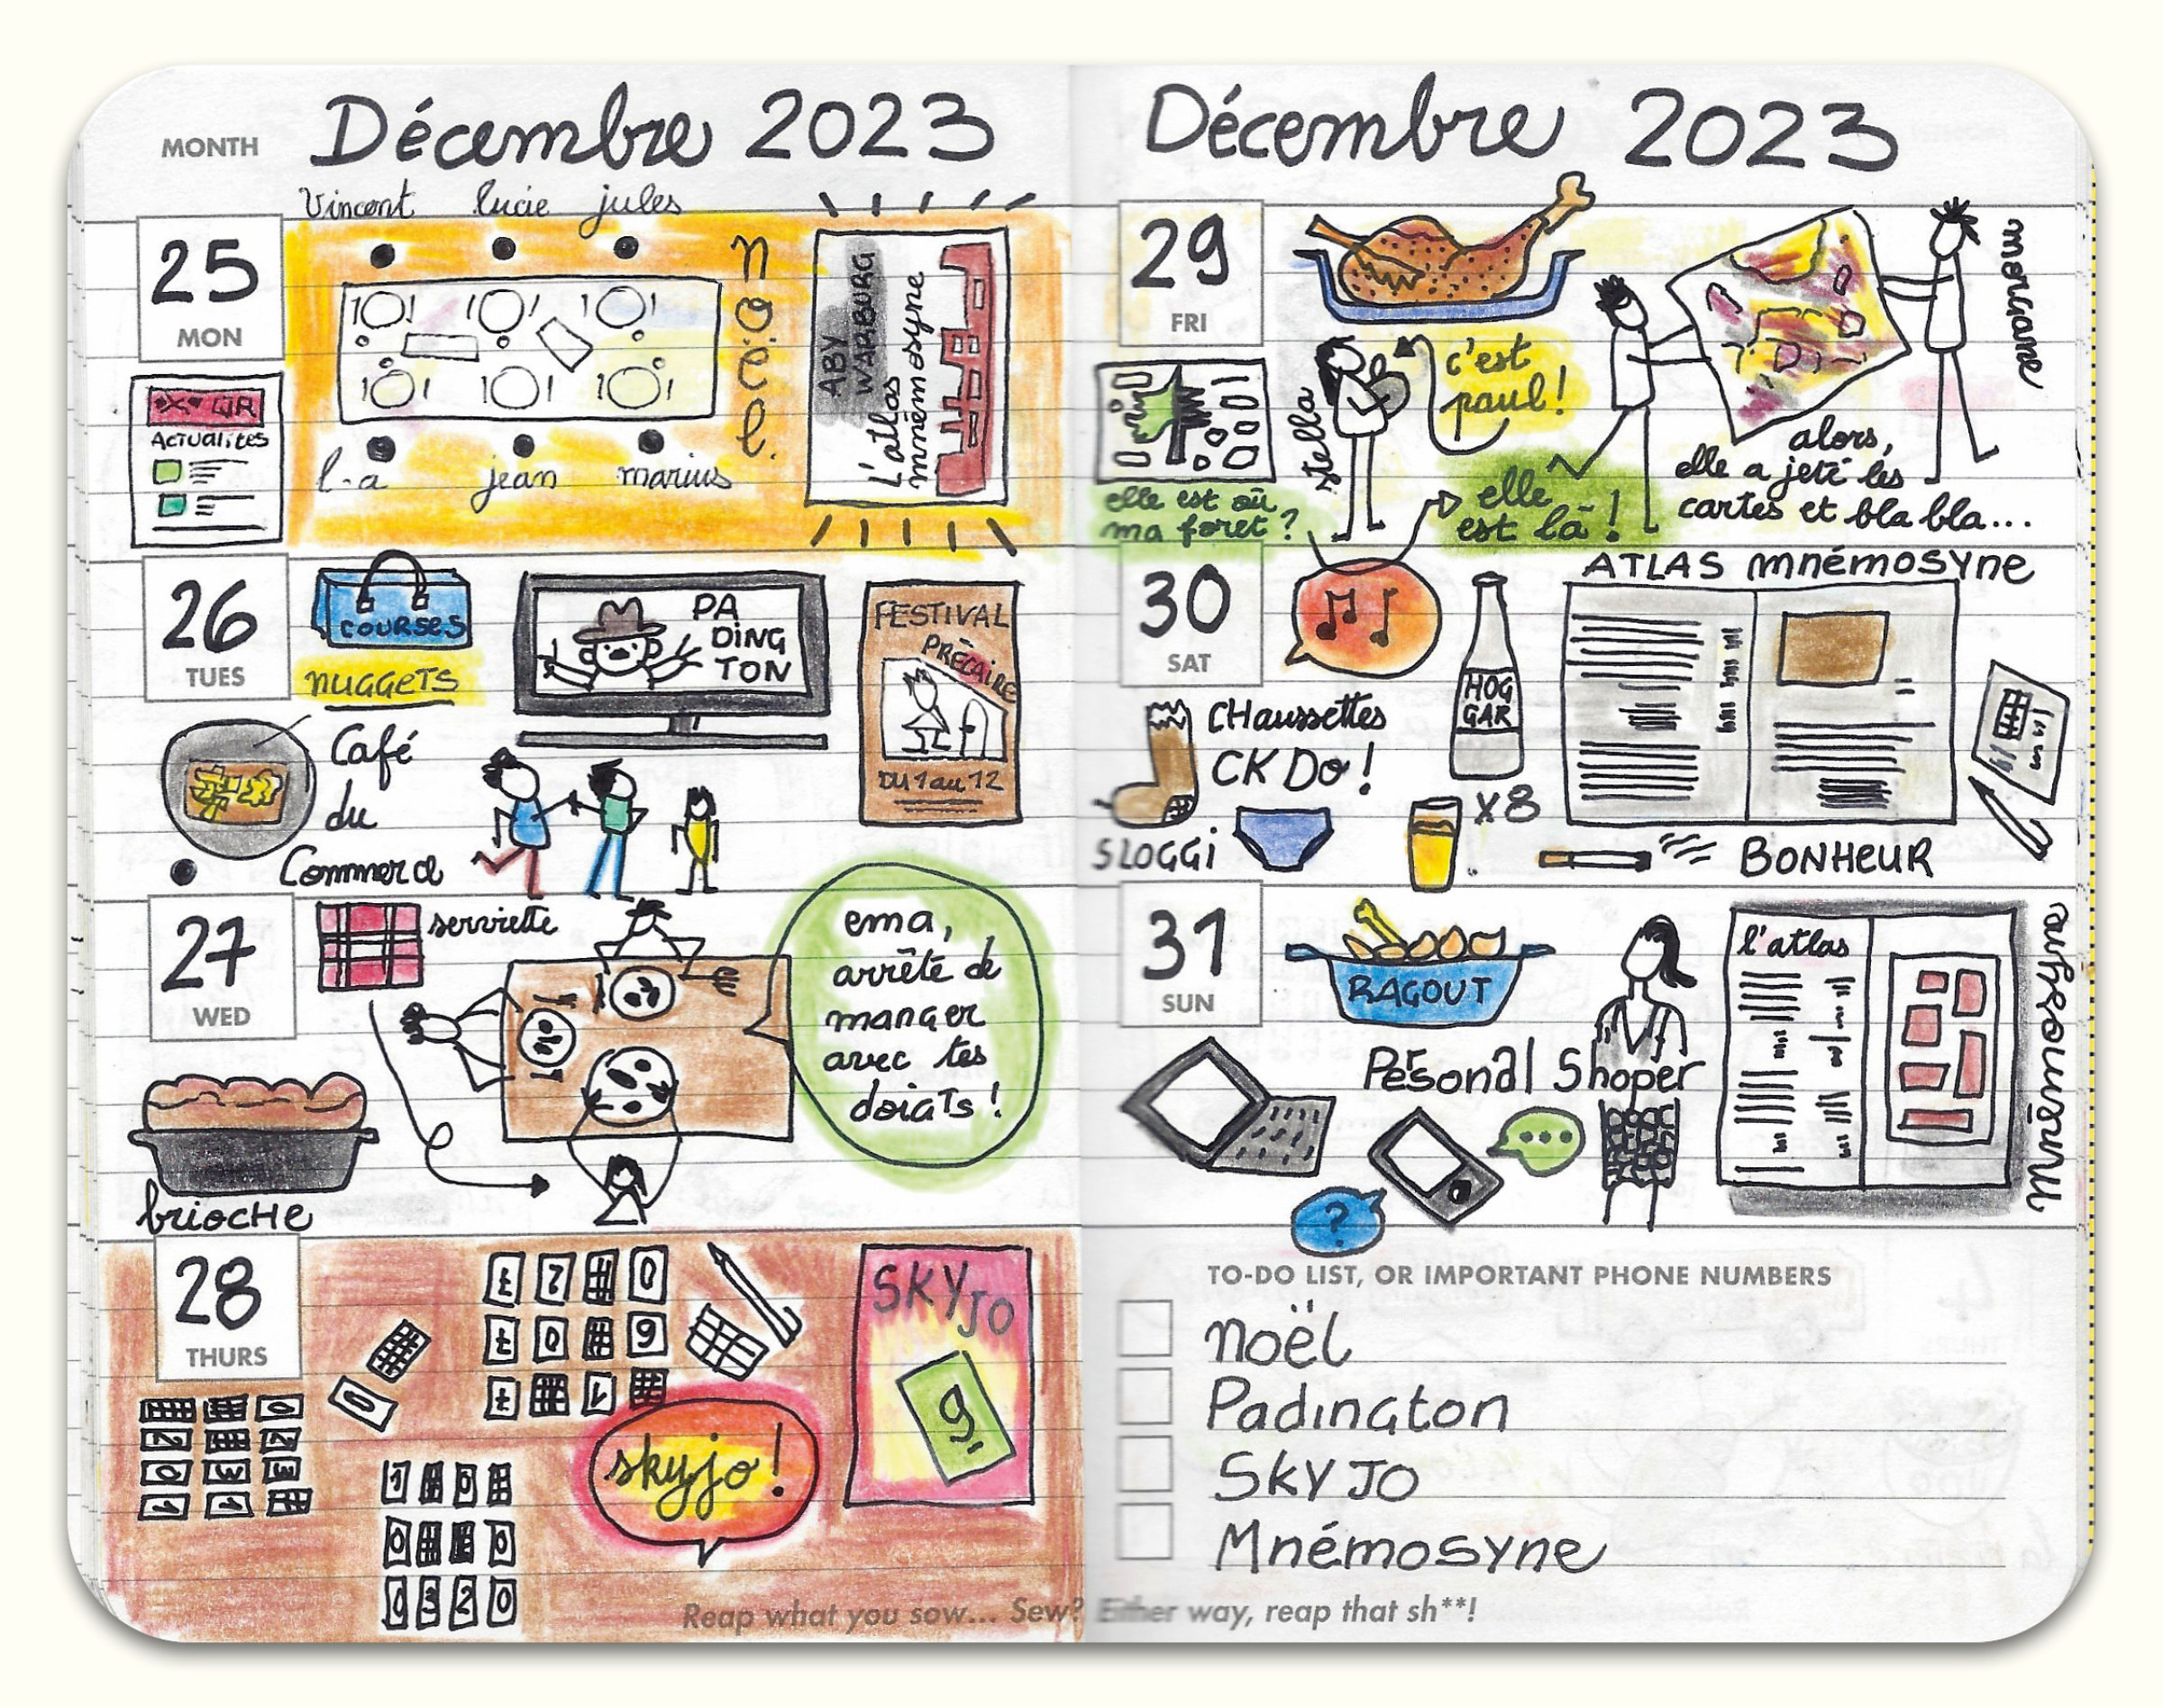 MONTH
Décembre 2023
Vincent lucie jules
25
MON
Actualités
l-a jean marius
ABY
WARBURG
L'atlas
mnémosyne
26
TUES
COURSES
NUGGETS
PA
DING
TON
FESTIVAL
PRÉCAIRE
DU 1 au 12
Café
du
Commerce
27
WED
serviette
ema,
arrête de
manger
avec tes
doigts!
briocHe
28
THURS
SKYJO
9
skyjo!
Reap what you sow... Sew?
Décembre 2023
29
FRI
c'est
paul!
stella
morgane
elle est où
ma foret?
elle
est là!
alors,
elle a jeté les
cartes et bla bla...
30
SAT
CHaussettes
CK Do!
SLOGGI
HOG
GAR
X8
ATLAS mnémosyne
BONHEUR
31
SUN
RAGOUT
Pesonal Shoper
?
l'atlas
TO-DO LIST, OR IMPORTANT PHONE NUMBERS
noël
Padington
SKYJO
Mnémosyne
Either way, reap that sh**!